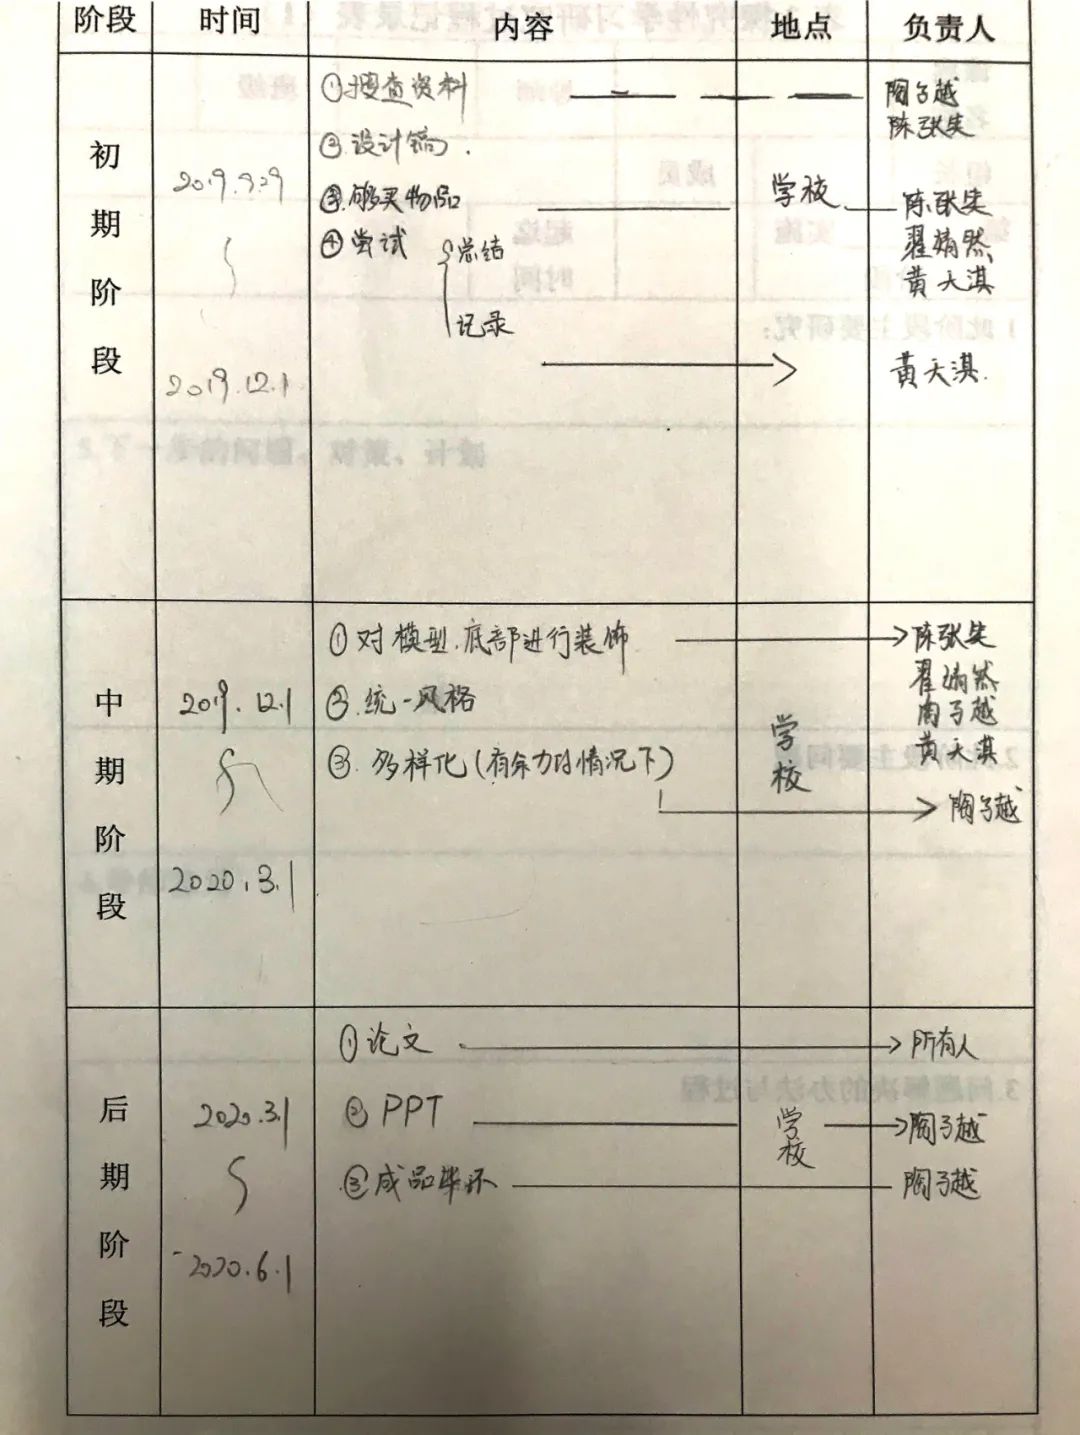 阶段 时间 内容 地点 负责人
初期阶段
2019.9.29
2019.12.1
①搜查资料 陶子越
陈张奕
②设计稿.
③够买物品 学校 陈张奕
翟婧然
黄天淇
④尝试 总结
记录
黄天淇.
中期阶段
2019.12.1
2020.3.1
①对模型.底部进行装饰 陈张奕
翟婧然
陶子越
黄天淇
②.统一风格
③.多样化(有余力的情况下) 陶子越
学校
后期阶段
2020.3.1
2020.6.1
①论文 所有人
②PPT 学校 陶子越
③成品 陶子越